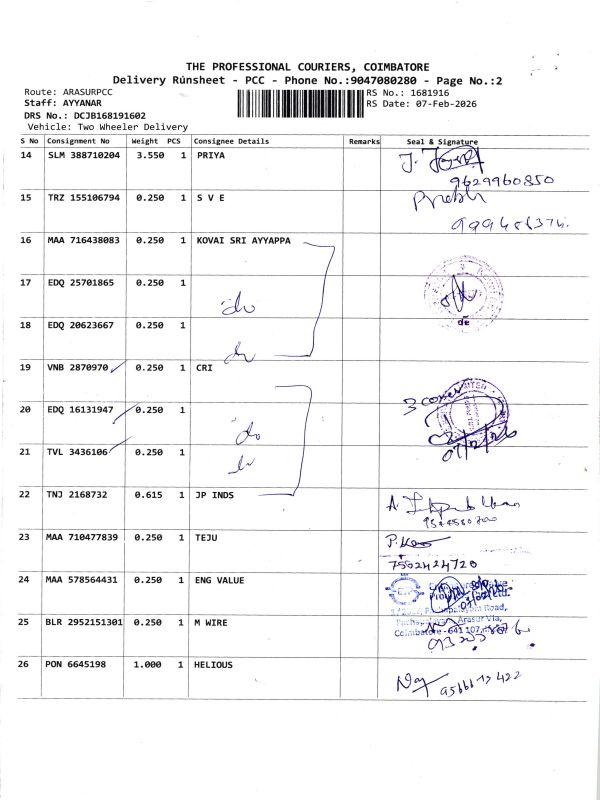 THE PROFESSIONAL COURIERS, COIMBATORE
Delivery Runsheet - PCC - Phone No.:9047080280 - Page No.:2
Route: ARASURPCC
RS No.: 1681916
Staff: AYYANAR
RS Date: 07-Feb-2026
DRS No.: DCJB168191602
Vehicle: Two Wheeler Delivery
S No Consignment No Weight PCS Consignee Details Remarks Seal & Signature
14 SLM 388710204 3.550 1 PRIYA
9629960850
15 TRZ 155106794 0.250 1 S V E
16 MAA 716438083 0.250 1 KOVAI SRI AYYAPPA
17 EDQ 25701865 0.250 1
do
18 EDQ 20623667 0.250 1
do
19 VNB 2870970 0.250 1 CRI
20 EDQ 16131947 0.250 1
3 cover
do
07/2/26
21 TVL 3436106 0.250 1
do
22 TNJ 2168732 0.615 1 JP INDS
23 MAA 710477839 0.250 1 TEJU
7502424720
24 MAA 578564431 0.250 1 ENG VALUE
Road,
Arasur Via,
Coimbatore - 641 107
25 BLR 2952151301 0.250 1 M WIRE
26 PON 6645198 1.000 1 HELIOUS